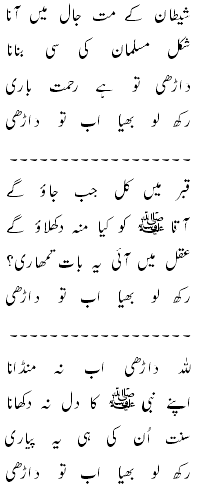 شیطان کے مت جال میں آنا
شکل مسلمان کی سی بنانا
داڑھی تو ہے رحمت باری
رکھ لو بھیا اب تو داڑھی
------------------
قبر میں کل جب جاؤ گے
آقا ﷺ کو کیا منہ دکھلاؤ گے
عقل میں آئی یہ بات تمھاری؟
رکھ لو بھیا اب تو داڑھی
------------------
للہ داڑھی اب نہ منڈانا
اپنے نبی ﷺ کا دل نہ دکھانا
سنت اُن کی ہی یہ پیاری
رکھ لو بھیا اب تو داڑھی